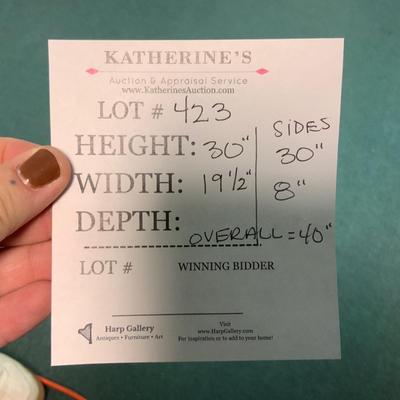 KATHERINE'S
Auction & Appraisal Service
www.KatherinesAuction.com
LOT # 423
HEIGHT: 30"
WIDTH: 19 1/2"
DEPTH:
SIDES
30"
8"
OVERALL = 40"
LOT # WINNING BIDDER
Harp Gallery
Antiques • Furniture • Art
Visit
www.HarpGallery.com
For inspiration or to add to your home!